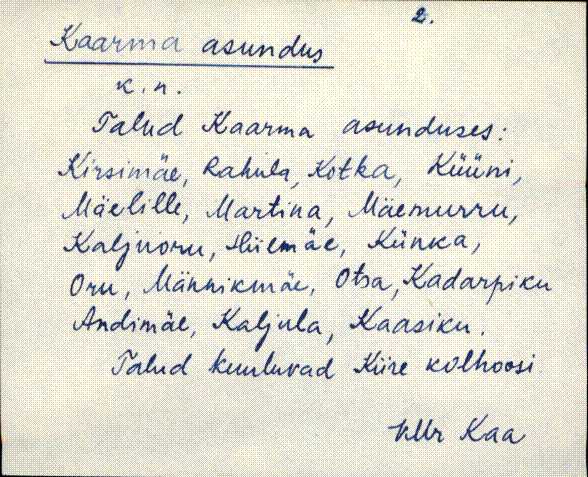 2.
Kaarma asundus
k.n.
Talud Kaarma asunduses:
Kirsimäe, Rahula, Kotka, Küüni,
Mäelille, Martina, Mäemurru,
Kaljuoru, Hiiemäe, Künka,
Oru, Männikmäe, Otsa, Kadarpiku
Andimäe, Kaljula, Kaasiku.
Talud kuuluvad Kiire kolhoosi
VMr Kaa